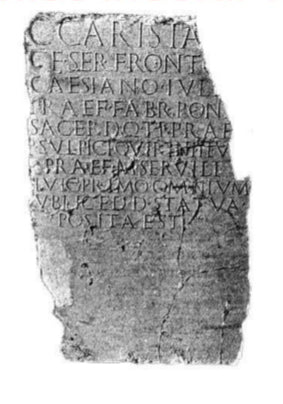 C·CARISTA
C·F·SER·FRONT
CAESIANO·IVL
PRAEF·FABR·PON
SACERDOTI·PRAE
SVLPICI·QVIRINI·II·V
PRAEF·M·SERVILI
HVIC·PRIMO·OMNIVM
VBLICE·D·D·STATVA
POSITA·EST